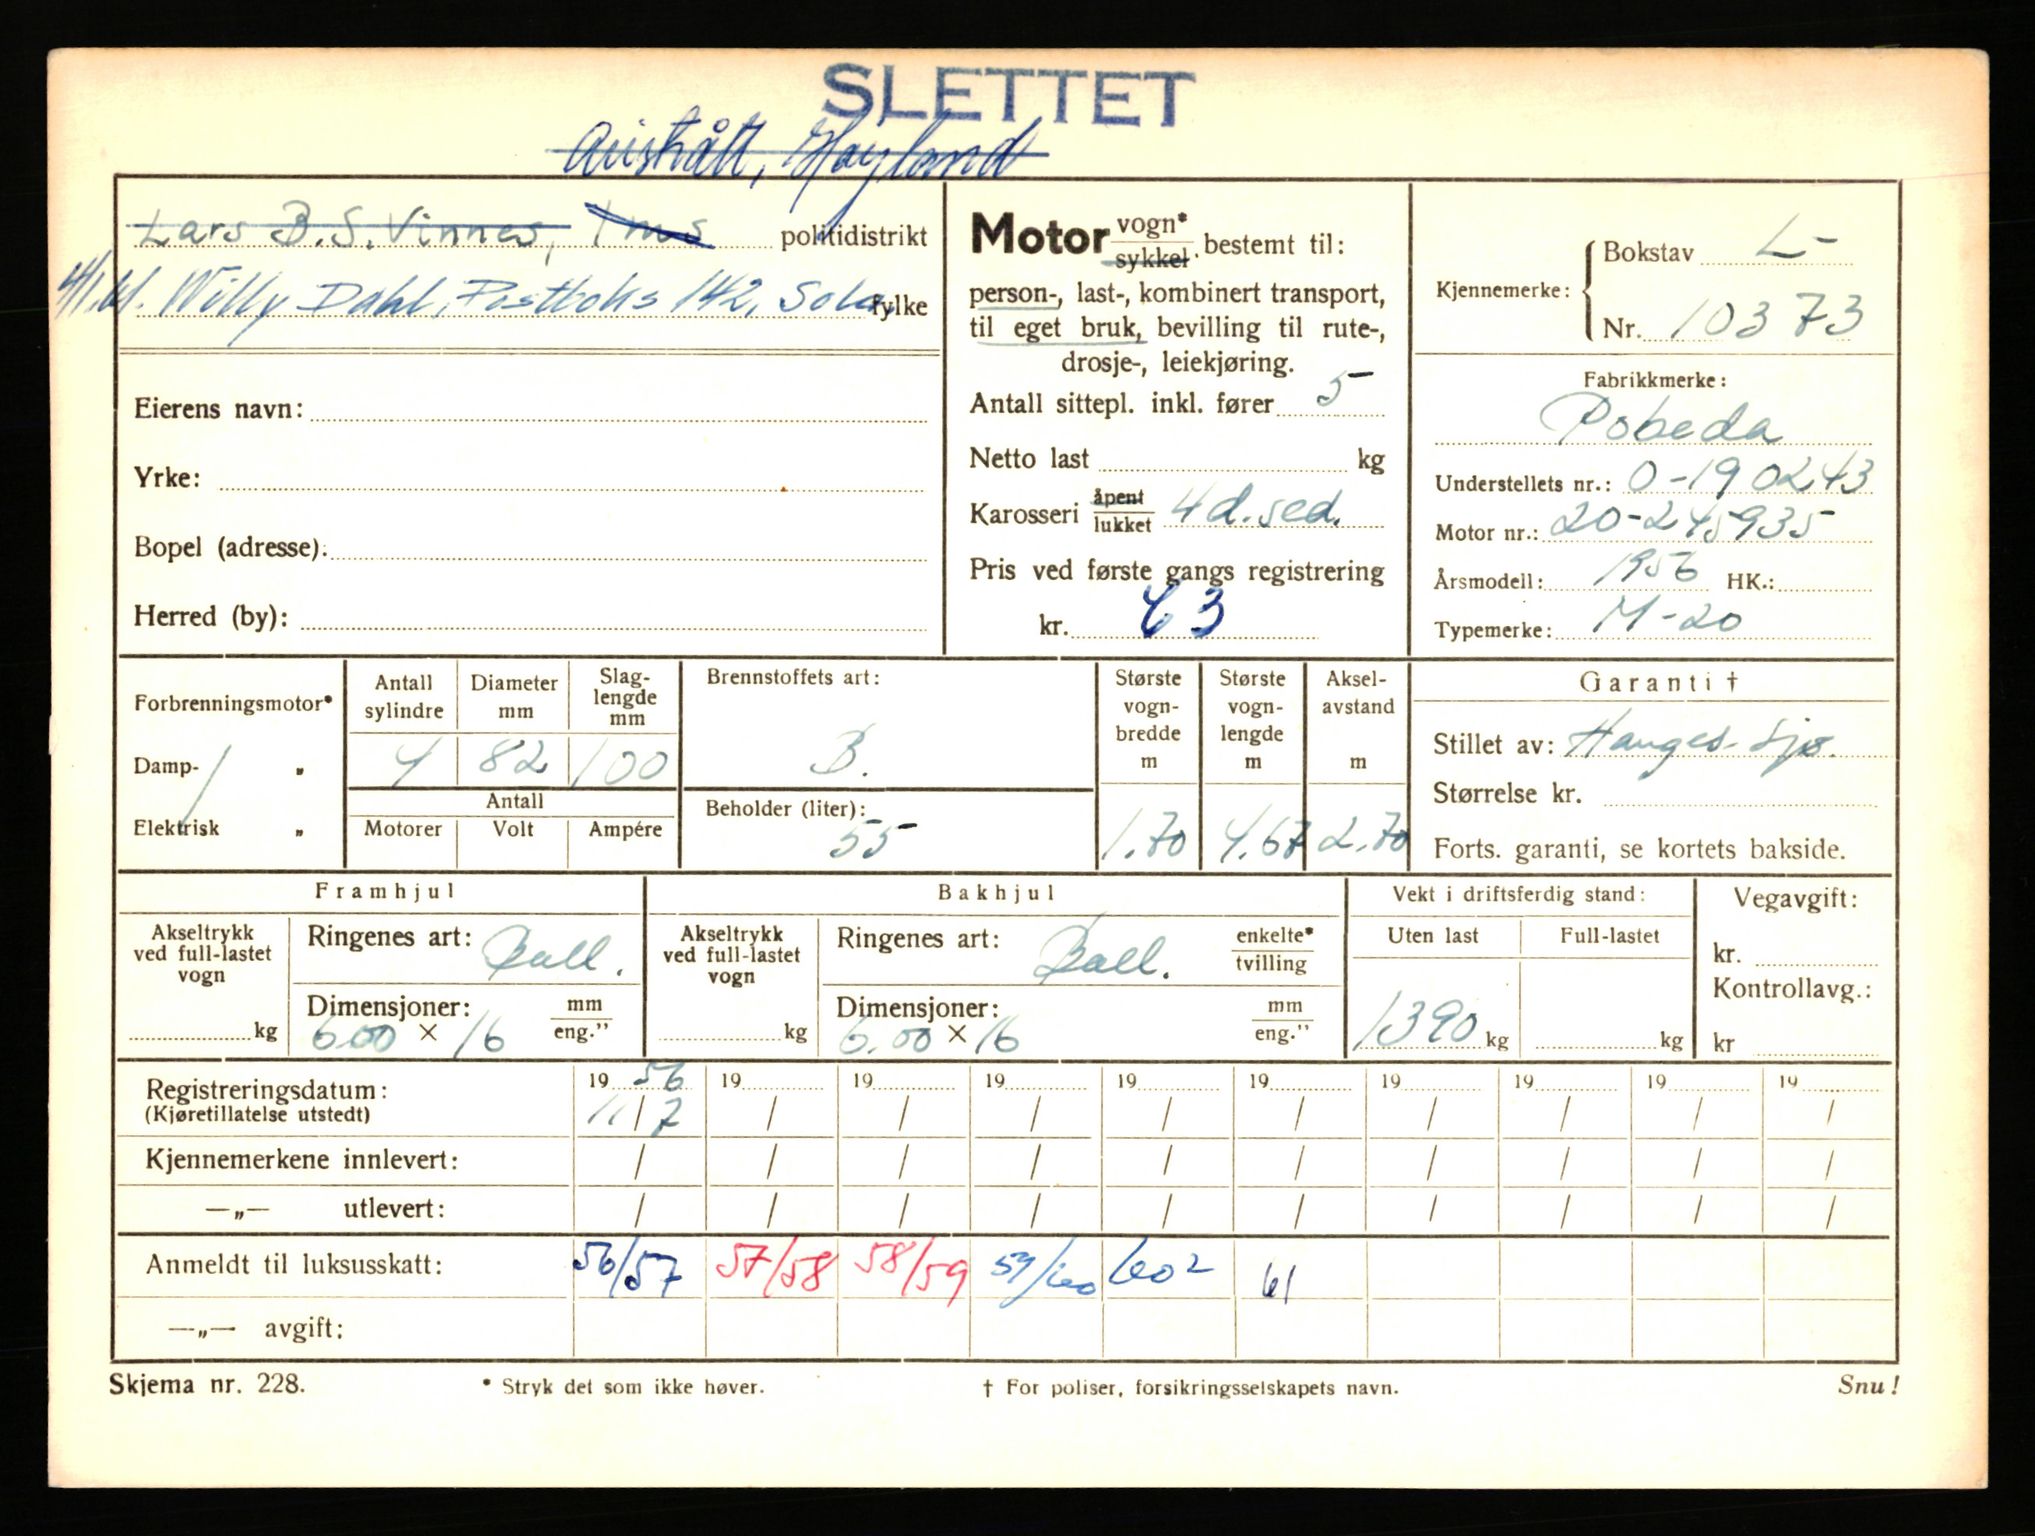 SLETTET
Austrått, Høyland
Lars B.S. Vinnes, Ims politidistrikt
Willy Dahl, Postboks 142, Sola fylke
Eierens navn:
Yrke:
Bopel (adresse):
Herred (by):
Motor vogn* sykkel. bestemt til:
person-, last-, kombinert transport,
til eget bruk, bevilling til rute-,
drosje-, leiekjøring.
Antall sittepl. inkl. fører 5
Netto last kg
Karosseri åpent lukket 4 d. sed.
Pris ved første gangs registrering
kr. 63
Kjennemerke: Bokstav L-
Nr. 10373
Fabrikkmerke:
Pobeda
Understellets nr.: 0-190243
Motor nr.: 20-245935
Årsmodell: 1956 HK.:
Typemerke: M-20
Forbrenningsmotor*
Damp- „
Elektrisk „
Antall sylindre Diameter mm Slag-lengde mm
4 82 100
Antall
Motorer Volt Ampére
Brennstoffets art:
B.
Beholder (liter):
55
Største vogn-bredde m
1.70
Største vogn-lengde m
4.67
Aksel-avstand m
2.70
Garanti †
Stillet av: Hauges. Sjø.
Størrelse kr.
Forts. garanti, se kortets bakside.
Framhjul
Akseltrykk ved full-lastet vogn
kg
Ringenes art: Ball.
Dimensjoner: mm eng.”
6.00 × 16
Bakhjul
Akseltrykk ved full-lastet vogn
kg
Ringenes art: Ball. enkelte* tvilling
Dimensjoner: mm eng.”
6.00 × 16
Vekt i driftsferdig stand:
Uten last Full-lastet
1390 kg kg
Vegavgift:
kr.
Kontrollavg.:
kr
Registreringsdatum: 19 56 19 19 19 19 19 19 19 19 19
(Kjøretillatelse utstedt) 11/7 / / / / / / / / /
Kjennemerkene innlevert: / / / / / / / / / /
—„— utlevert: / / / / / / / / / /
Anmeldt til luksusskatt: 56/57 57/58 58/59 59/60 60² 61
—„— avgift:
Skjema nr. 228. * Stryk det som ikke høver. † For poliser, forsikringsselskapets navn. Snu!